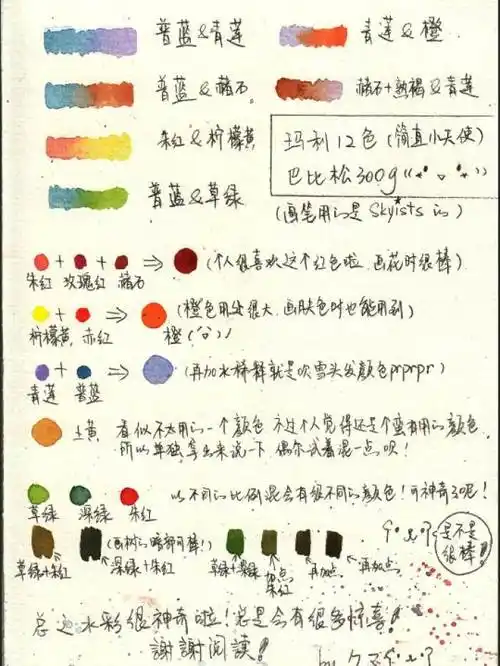 普蓝&青莲
青莲&橙
普蓝&赭石。
赭石+熟褐&青莲
朱红&柠檬黄
普蓝&草绿
玛利12色(简直小天使)
巴比松300g
(画笔用的是Skyists的)
朱红 + 玫瑰红 + 赭石 ⇒ (个人很喜欢这个红色啦,画花时很棒)
柠檬黄 + 赤红 ⇒ 橙 (橙色用处很大,画肤色时也能用到)
青莲 + 普蓝 ⇒ (再加水稀释就是吹雪头发颜色prprpr)
土黄 看似不太用的一个颜色 不过个人觉得还是个蛮有用的颜色
所以单独拿出来说一下 偶尔试着混一点呗!
草绿 深绿 朱红 以不同的比例混会有很不同的颜色!可神奇了呢!
草绿+朱红 深绿+朱红 (画树的暗部可棒!)
草绿+深绿 加点朱红 再加点 再加点
是不是很棒!
总之水彩很神奇啦!总是会有很多惊喜!
謝謝阅读!
by